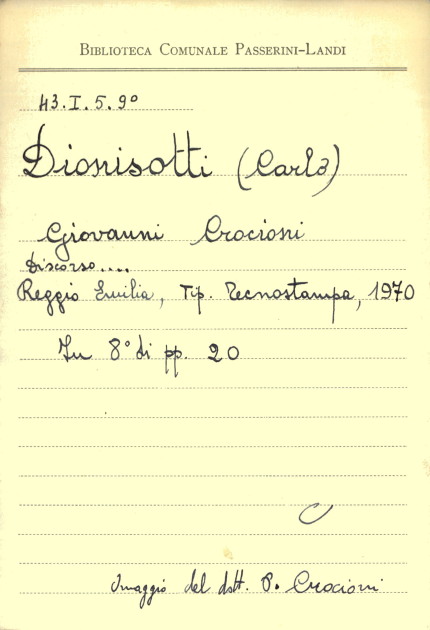 BIBLIOTECA COMUNALE PASSERINI-LANDI
43.I.5.9°
Dionisotti (Carlo)
Giovanni Crocioni
Discorso....
Reggio Emilia, Tip. Tecnostampa, 1970
In 8° di pp. 20
Omaggio del dott. P. Crocioni